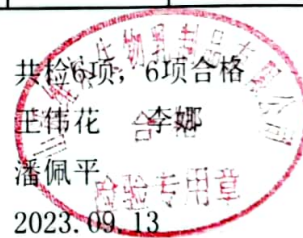 共检6项，6项合格
王伟花 李娜
潘佩平
2023.09.13
物乳制品有限公司
合格
检验专用章